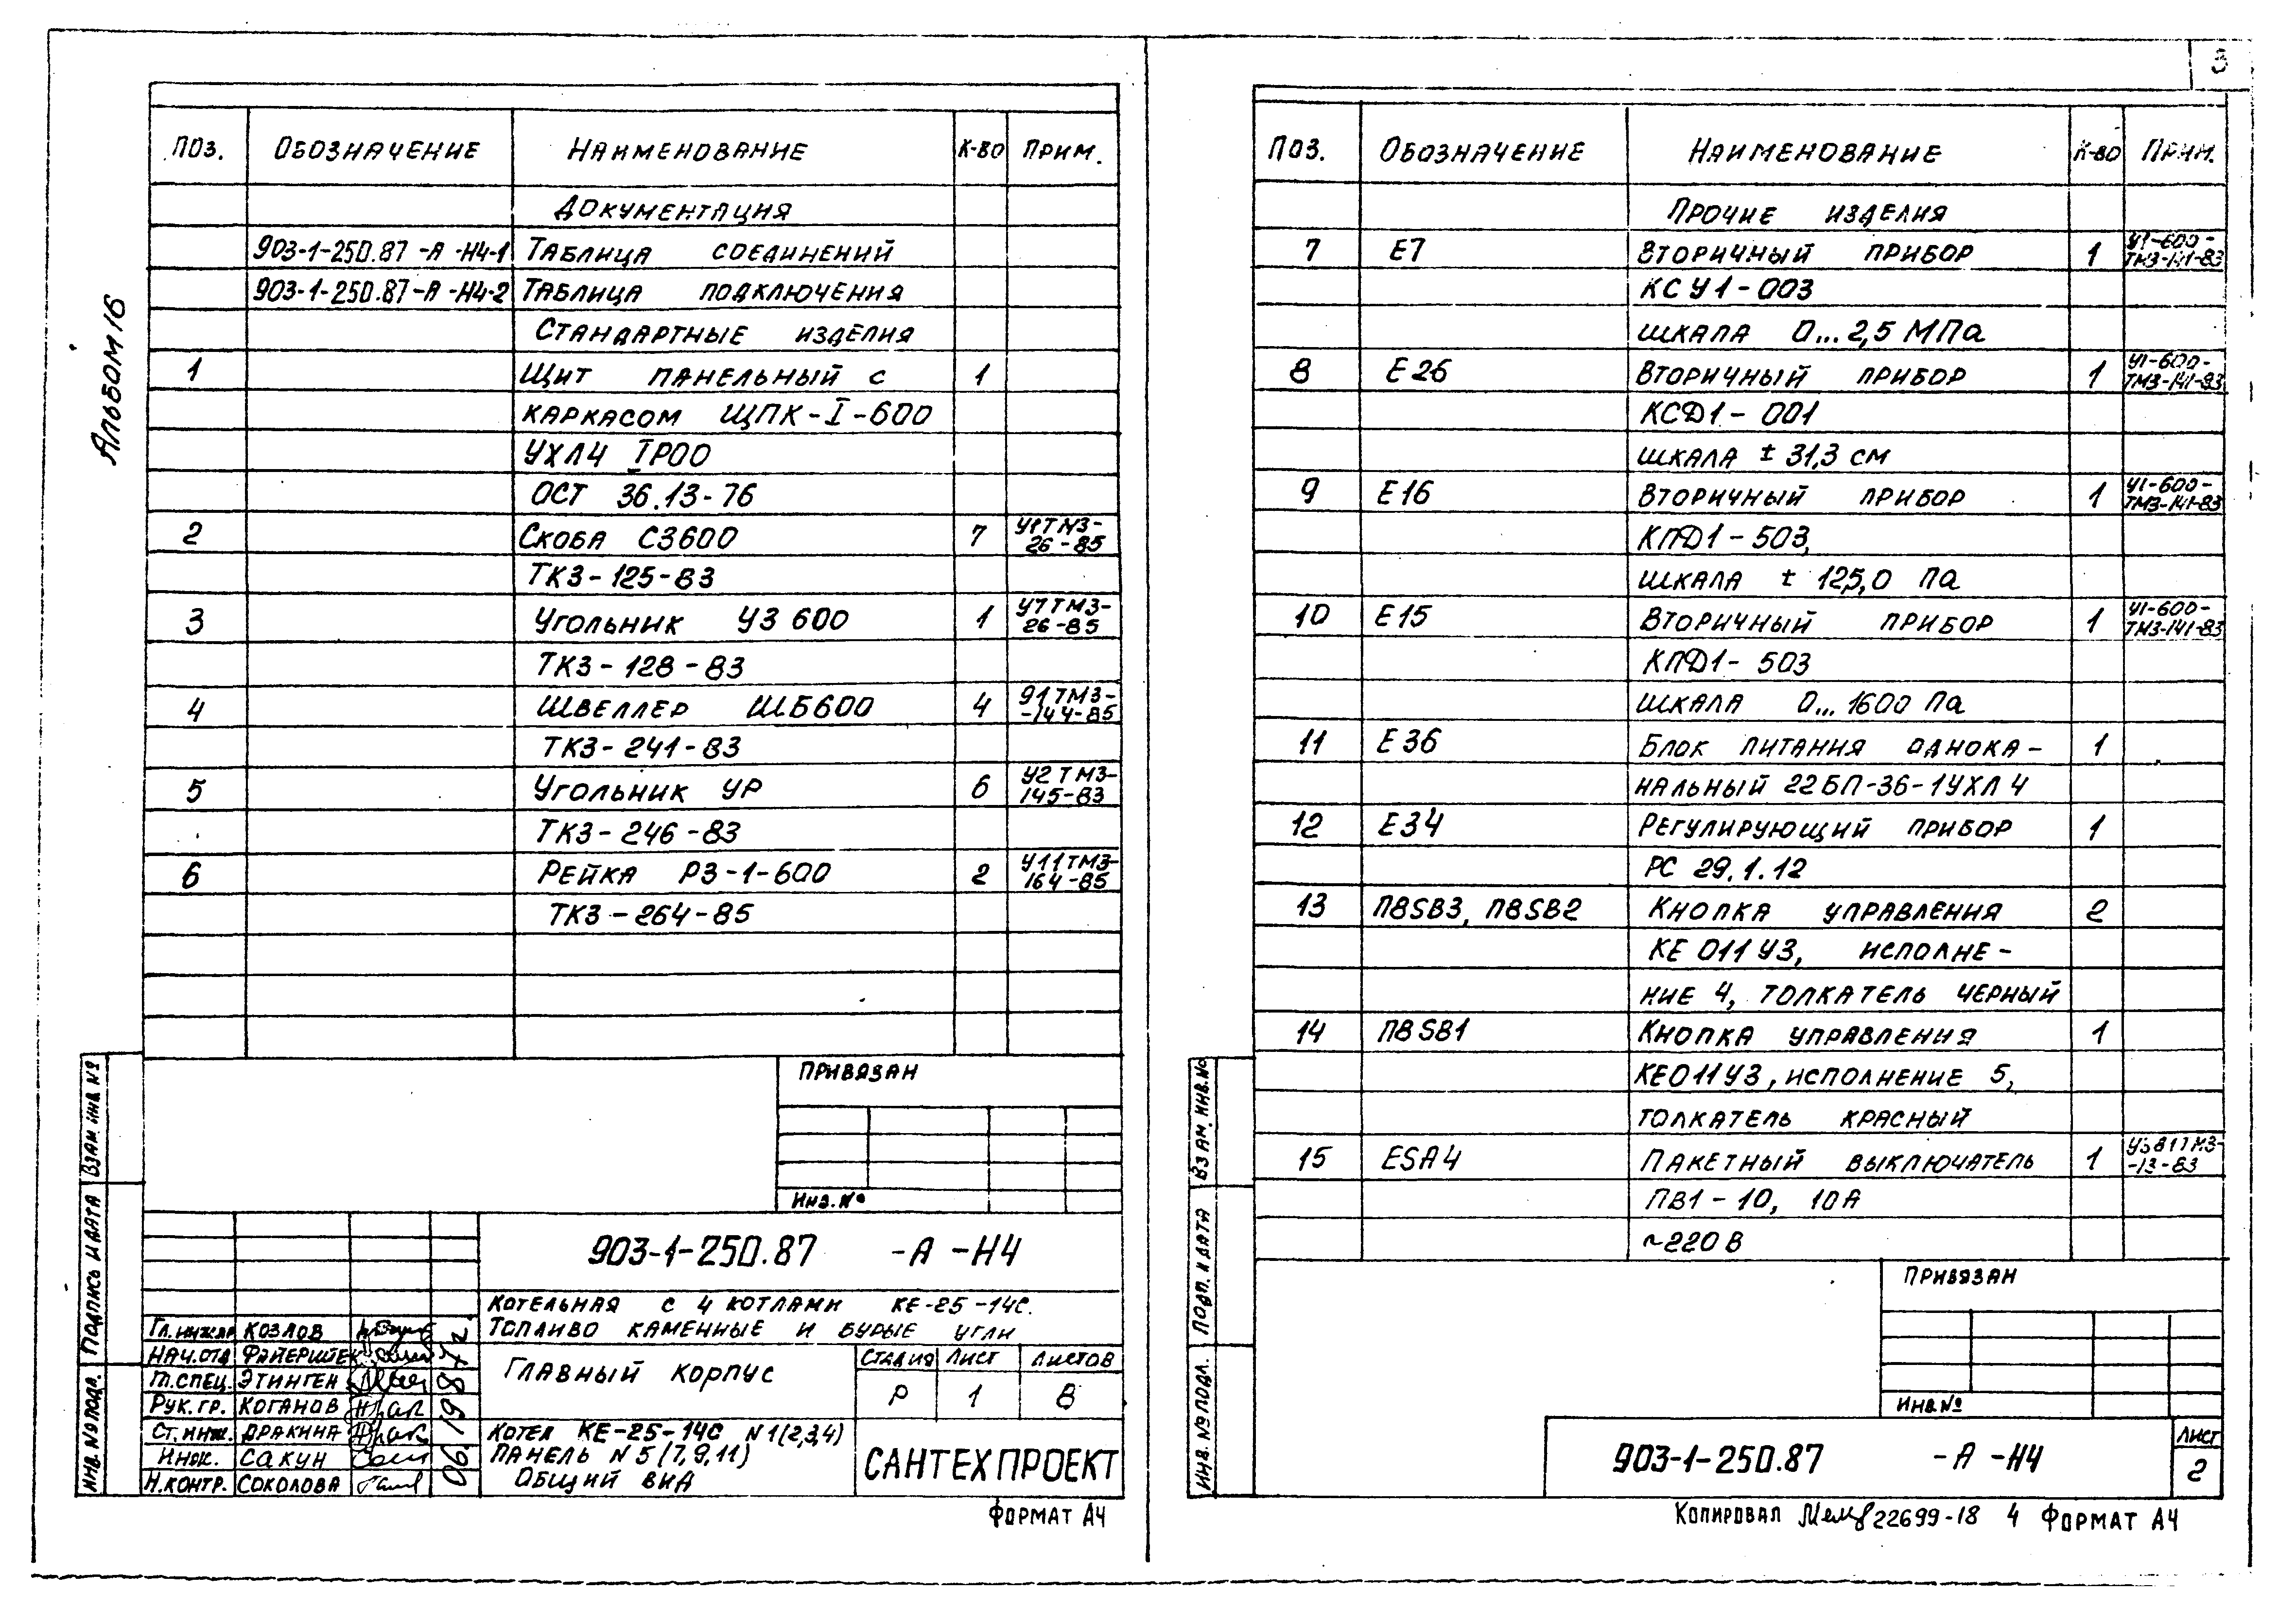 3
Альбом 16
Поз. Обозначение Наименование К-во Прим.
Документация
903-1-250.87 -А -Н4-1 Таблица соединений
903-1-250.87 -А -Н4-2 Таблица подключения
Стандартные изделия
1 Щит панельный с 1
каркасом ЩПК-I-600
УХЛ4 IP00
ОСТ 36.13-76
2 Скоба С3600 7 У1ТМ3-
26-85
ТК3-125-83
3 Угольник У3 600 1 У7ТМ3-
26-85
ТК3-128-83
4 Швеллер ШБ600 4 91ТМ3-
-144-85
ТК3-241-83
5 Угольник УР 6 У2ТМ3-
145-83
ТК3-246-83
6 Рейка Р3-1-600 2 У11ТМ3-
164-85
ТК3-264-85
Привязан
Инв.№
903-1-250.87 -А -Н4
Котельная с 4 котлами КЕ-25-14С.
Топливо каменные и бурые угли
Гл.инж.пр Козлов
Нач.отд Файерштек
Гл.спец. Этинген
Рук.гр. Коганов
Ст.инж. Дракина
Инж. Сакун
Н.контр. Соколова
06.1987г.
Главный корпус
Стадия Лист Листов
Р 1 8
Котел КЕ-25-14С N1(2,3,4)
Панель N5(7,9,11)
Общий вид
САНТЕХПРОЕКТ
Формат А4
Взам.инв.№
Подпись и дата
Инв.№подл.
Поз. Обозначение Наименование К-во Прим.
Прочие изделия
7 Е7 Вторичный прибор 1 У1-600-
ТМ3-141-83
КСУ1-003
шкала 0...2,5 МПа
8 Е26 Вторичный прибор 1 У1-600-
ТМ3-141-83
КСД1-001
шкала ± 31,3 см
9 Е16 Вторичный прибор 1 У1-600-
ТМ3-141-83
КПД1-503,
шкала ± 125,0 Па
10 Е15 Вторичный прибор 1 У1-600-
ТМ3-141-83
КПД1-503
шкала 0...1600 Па
11 Е36 Блок питания однока- 1
нальный 22БП-36-1УХЛ4
12 Е34 Регулирующий прибор 1
РС 29.1.12
13 П8SB3, П8SB2 Кнопка управления 2
КЕ 011У3, исполне-
ние 4, толкатель черный
14 П8SB1 Кнопка управления 1
КЕ011У3, исполнение 5,
толкатель красный
15 ESA4 Пакетный выключатель 1
-13-83
ПВ1-10, 10А
~220В
Привязан
Инв.№
903-1-250.87 -А -Н4
Лист
2
Взам.инв.№
Подп. и дата
Инв.№подл.
Копировал 22699-18 4 Формат А4